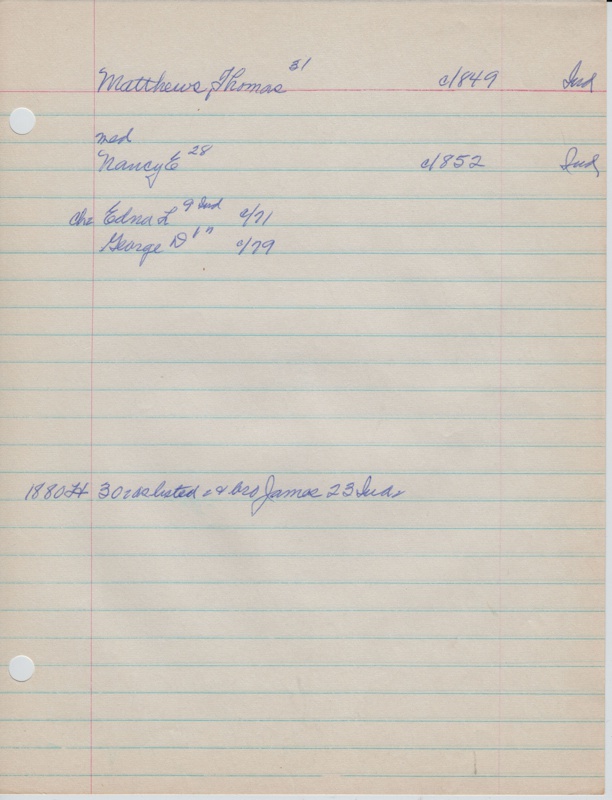 Matthews, Thomas 31 c/849 Ind
med
Nancy E 28 c/852 Ind
Chr Edna L 9 Ind c/71
George D 1 " c/79
1880 30 as listed & bro James 23 Ind